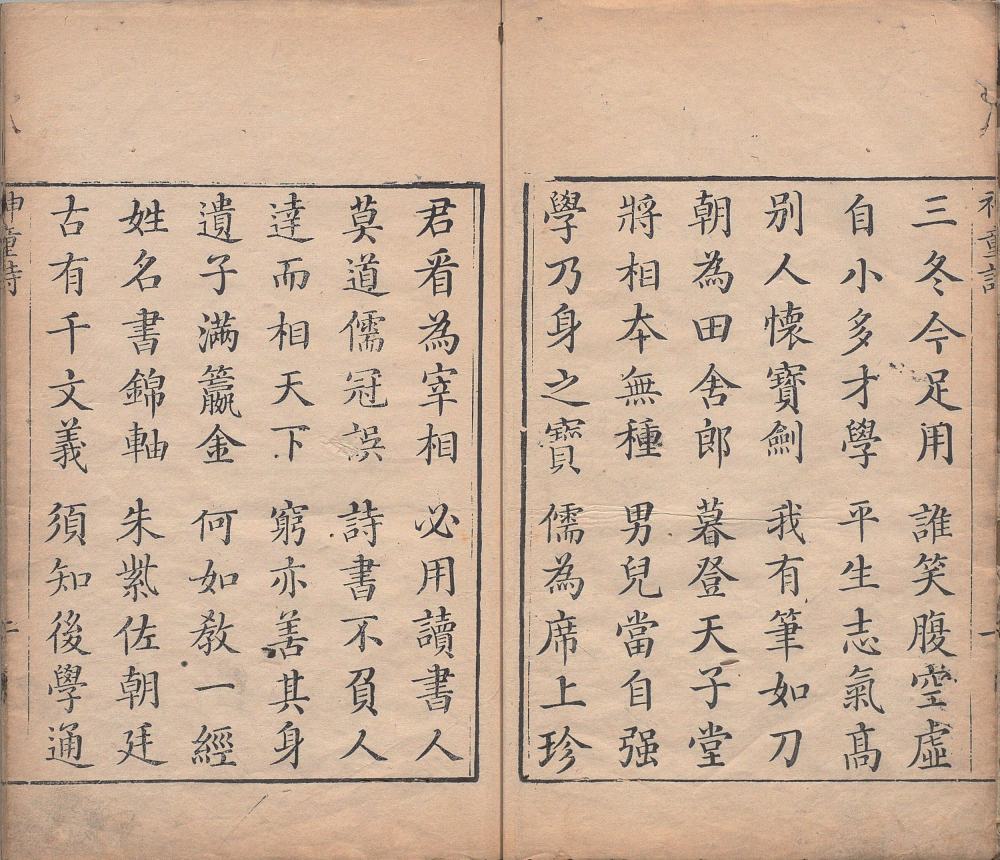 神童詩
三冬今足用 誰笑腹空虛
自小多才學 平生志氣高
別人懷寶劍 我有筆如刀
朝為田舍郎 暮登天子堂
將相本無種 男兒當自强
學乃身之寶 儒為席上珍
君看為宰相 必用讀書人
莫道儒冠誤 詩書不負人
達而相天下 窮亦善其身
遺子滿籝金 何如教一經
姓名書錦軸 朱紫佐朝廷
古有千文義 須知後學通
神童詩
二